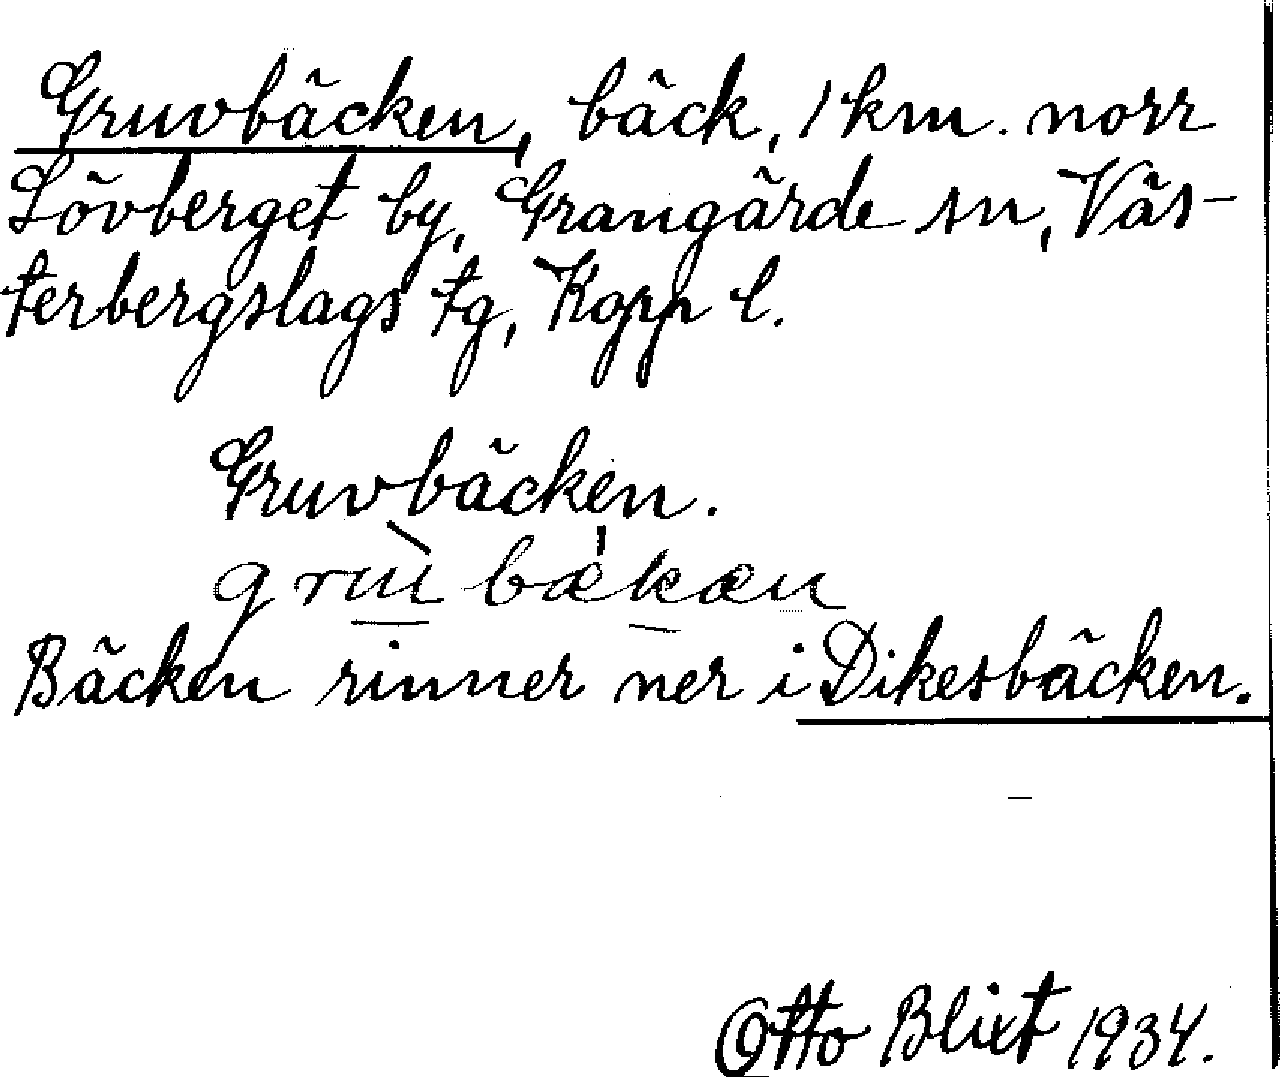 Gruvbäcken, bäck, 1 km. norr
Lövberget by, Grangärde sn, Väs-
terbergslags tg, Kopp l.
Gruvbäcken.
grùbækæn
Bäcken rinner ner i Dikesbäcken.
Otto Blixt 1934.